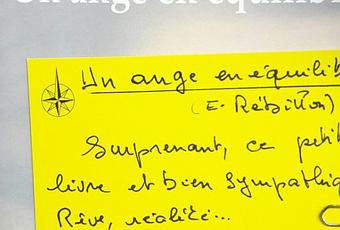 Un ange en équilib
Un ange en équilib
(E. Rébillon)
Surprenant, ce petit
livre et bien sympathiq
Rêve, réalité...